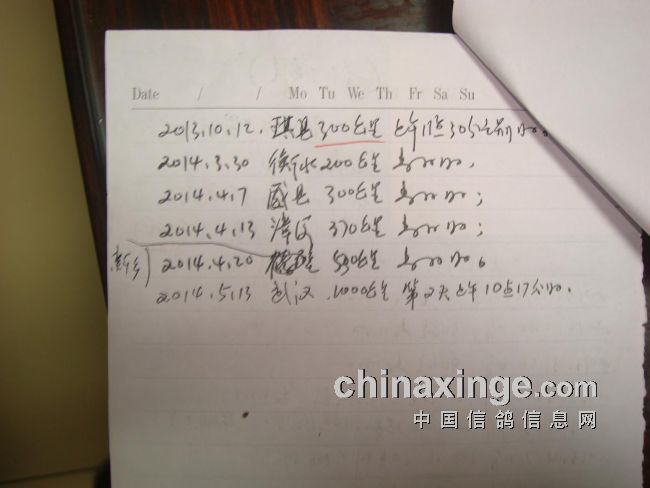 Date / / Mo Tu We Th Fr Sa Su
2013.10.12. 淇县300公里 上午11点30分之前归。
2014.3.30 衡水200公里 当日归,
2014.4.7 威县 300公里 当日归;
2014.4.13 漳河 370公里 当日归;
2014.4.20 530公里 当日归。
2014.5.13 武汉.1000公里 第2天上午10点17分归.
chinaxinge.com
中国信鸽信息网